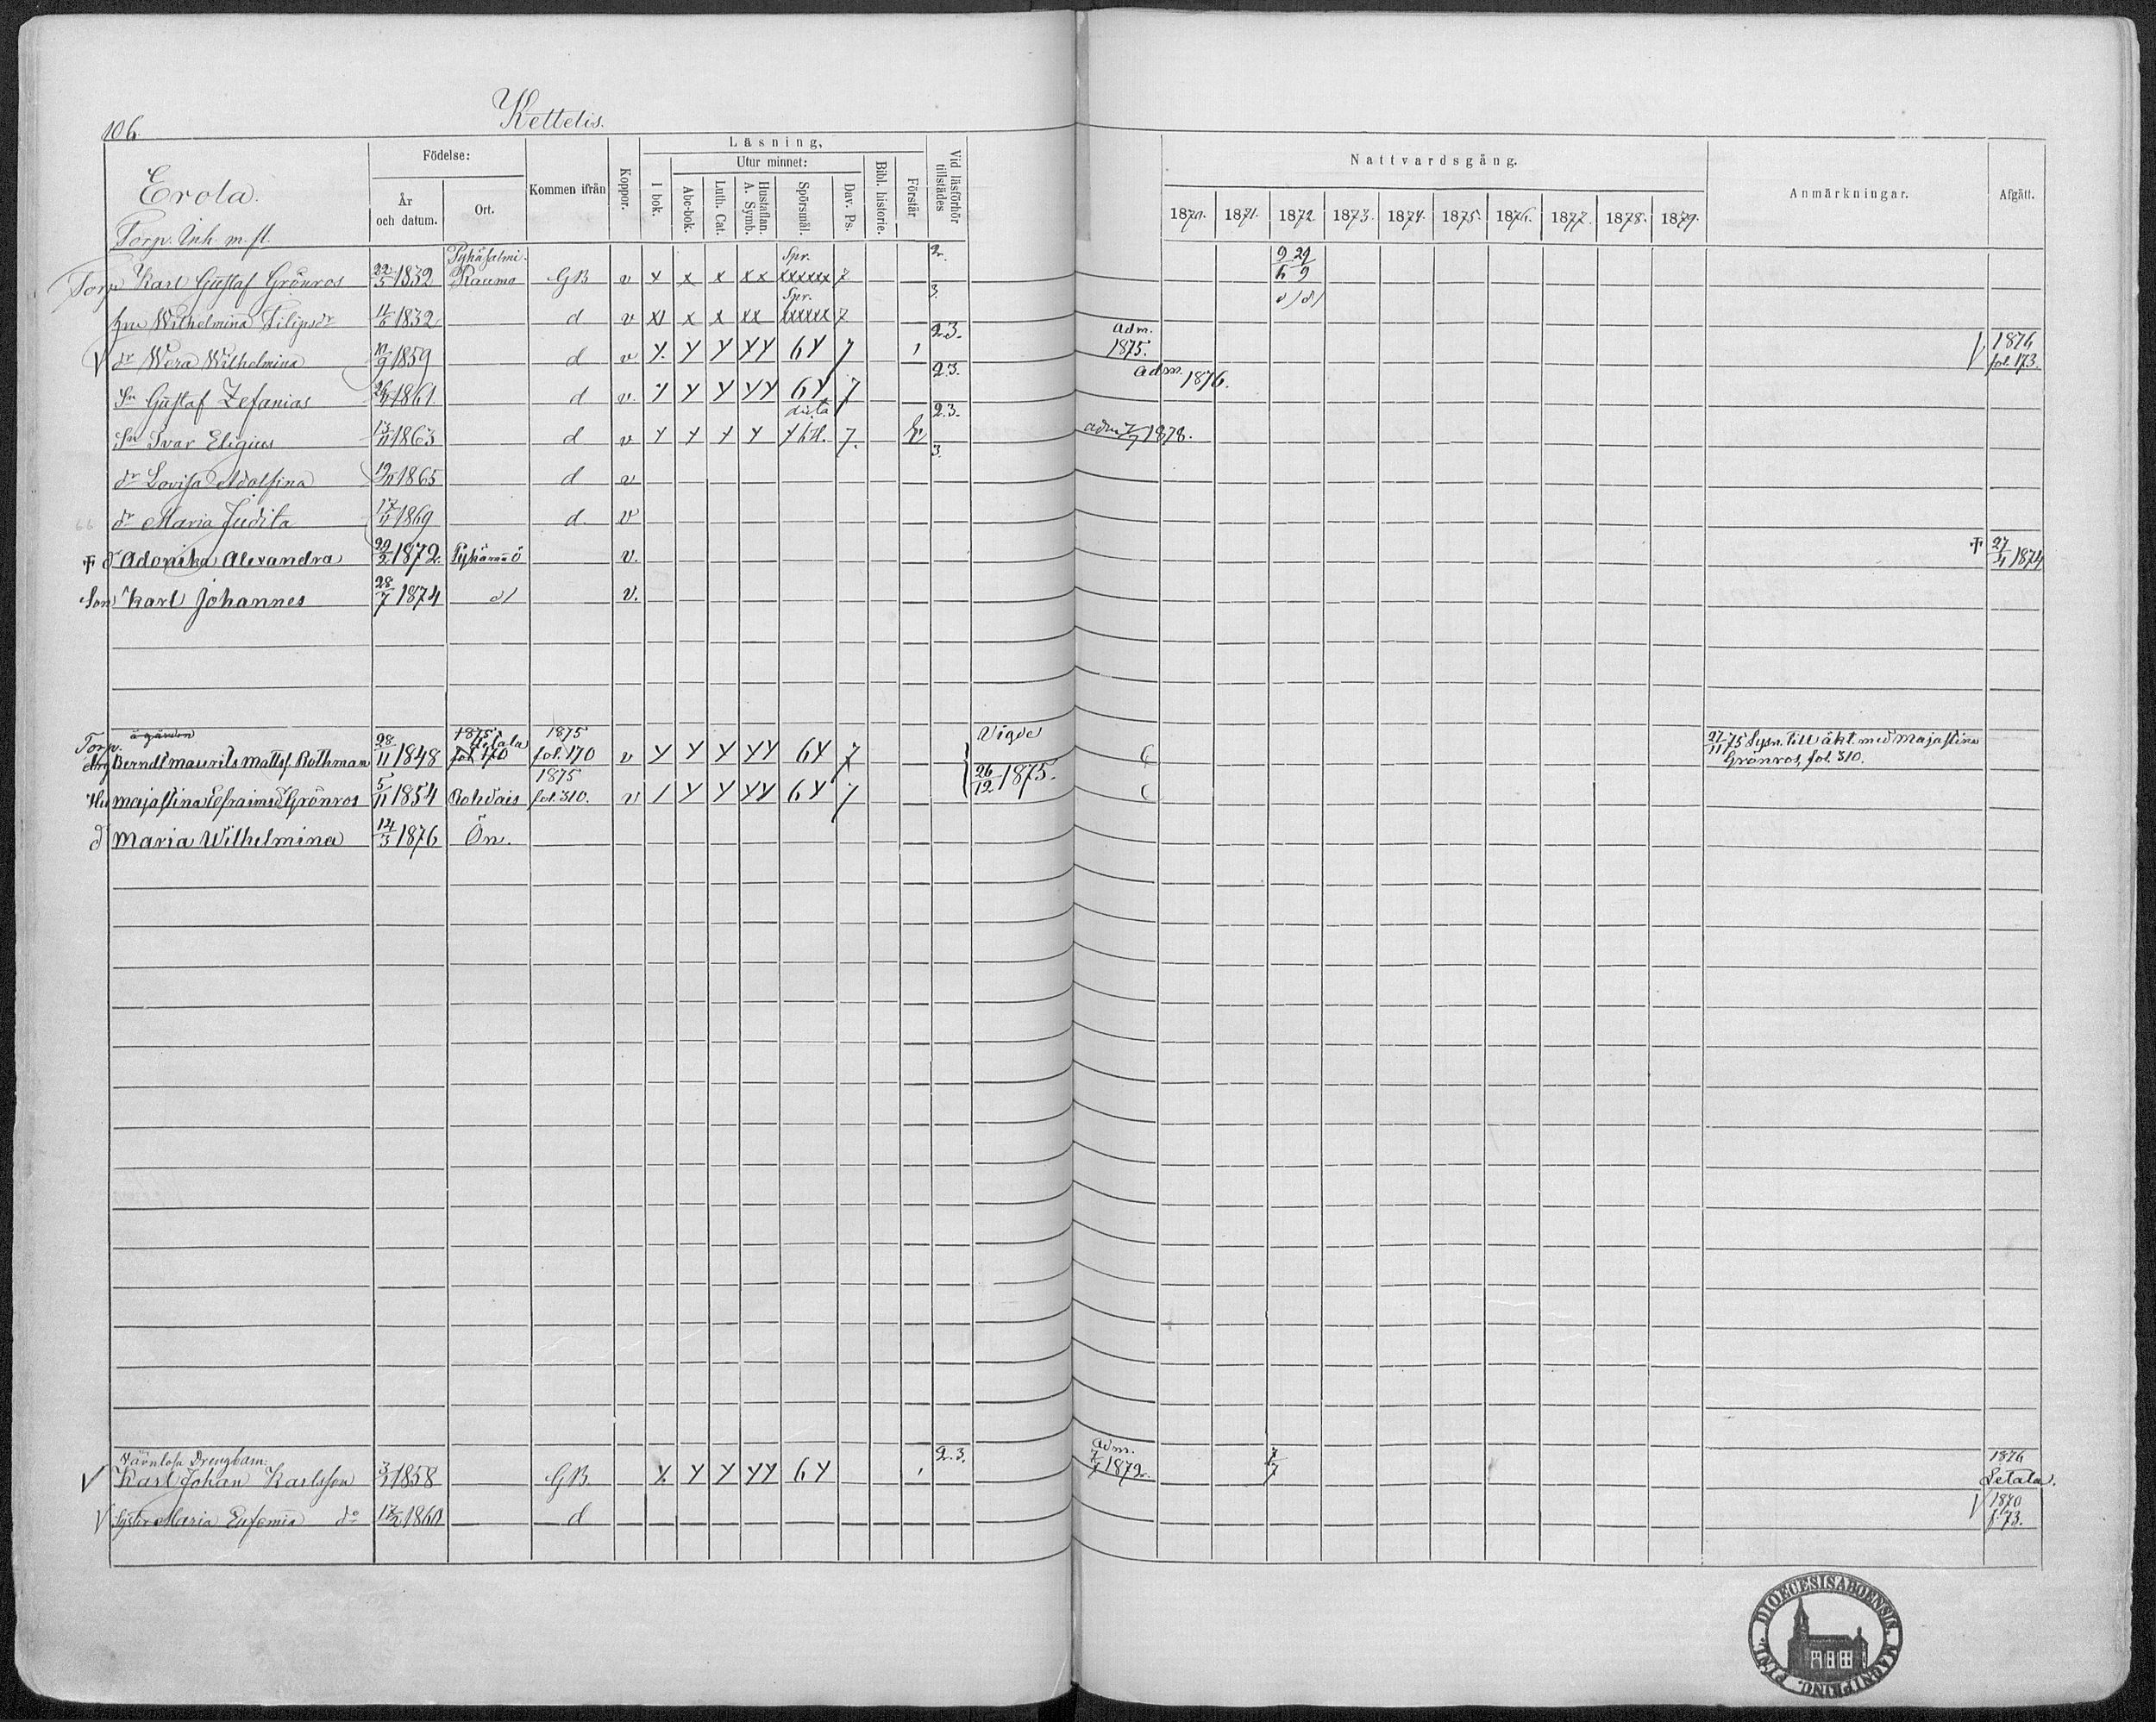 106.
Kettelis.
Erola.
Torp. Inh. m. fl.
Födelse:
År och datum.
Ort.
Kommen ifrån
Koppor.
Läsning,
I bok.
Utur minnet:
Abc-bok.
Luth. Cat.
Hustaflan. A. Symb.
Spörsmål.
Dav. Ps.
Bibl. historie.
Förstår
Vid läsförhör tillstädes
Nattvardsgång.
1870. 1871. 1872 1873. 1874. 1875. 1876. 1877. 1878. 1879.
Anmärkningar.
Afgått.
Pyhäsalmi. Spr. 2. 9/6 29/9
Torp Karl Gustaf Grönros 22/5 1832 Raumo GB v x x x xx xxxxxx 7
Spr. 3. d/ d/
hu Wilhelmina Filipsdr 1832 d v x x xx xxxxxx 7
2.3. Adm. 1876
V dr Wera Wilhelmina 10/9 1859 d v Y Y Y YY 6Y 7 1875. fol. 173.
2.3. adm.
Sn Gustaf Zefanias 1861 d v Y Y Y YY 6Y 7 1876.
2.3.
Sn Ivar Eligius 13/11 1863 d v Y Y Y Y 7. adm 1878.
3.
dr Lovisa Adolfina 19/11 1865 d v
dr Maria Judita 17/11 1869 d. v
✝ d Adonika Alexandra 29/2 1872. Pyhämaa v. ✝ 27/4 1874
Son Karl Johannes 28/7 1874 d/ v.
Torp. å gården 1875 Letala 1875 Vigde 27/11 75 Lysn. till äkt. med Majastina
Berndt Maurits Mattss. Rothman 28/11 1848 fol 170 fol. 170 v Y Y Y YY 6Y 7 Grönros, fol. 310.
1875 26/12 1875.
Hu Majastina Efraimsd Grönros 5/11 1854 Rohdais fol. 310. v Y Y YY 6Y 7
d Maria Wilhelmina 14/3 1876 Ön.
Värnlösa Drengbarn: 2.3. Adm. 7/7 1876
V Karl Johan Karlsson 1858 GB. Y. Y Y YY 6Y 7/7 1872. Letala.
V Syster Maria Eufemia do 1860 d V 1870 f. 73.
DIOECESIS ABOENSIS.